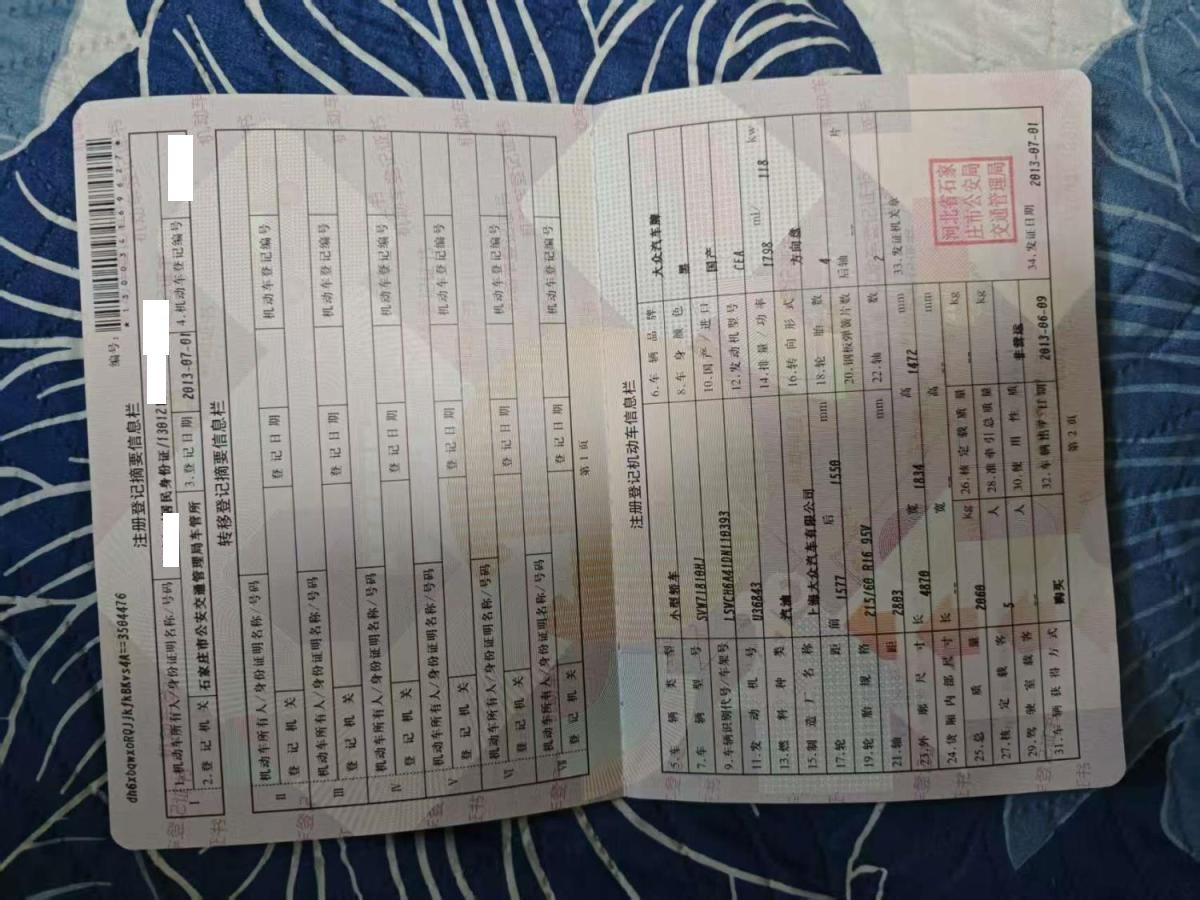 dh6xbqwxoRQJjkfkBKvs4A==3504476
编号:
*130034169627*
注册登记摘要信息栏
I 1.机动车所有人/身份证明名称/号码 居民身份证/130121
2.登记机关 石家庄市公安交通管理局车管所 3.登记日期 2013-07-01 4.机动车登记编号
转移登记摘要信息栏
II 机动车所有人/身份证明名称/号码
登记机关 登记日期 机动车登记编号
III 机动车所有人/身份证明名称/号码
登记机关 登记日期 机动车登记编号
IV 机动车所有人/身份证明名称/号码
登记机关 登记日期 机动车登记编号
V 机动车所有人/身份证明名称/号码
登记机关 登记日期 机动车登记编号
VI 机动车所有人/身份证明名称/号码
登记机关 登记日期 机动车登记编号
VII 机动车所有人/身份证明名称/号码
登记机关 登记日期 机动车登记编号
第1页
注册登记机动车信息栏
5.车辆类型 小型轿车 6.车辆品牌 大众汽车牌
7.车辆型号 SVW71810HJ 8.车身颜色 黑
9.车辆识别代号/车架号 LSVCH6A41DN110393 10.国产/进口 国产
11.发动机号 U36843 12.发动机型号 CEA
13.燃料种类 汽油 14.排量/功率 1798 ml/ 118 kw
15.制造厂名称 上海大众汽车有限公司 16.转向形式 方向盘
17.轮距 前 1577 后 1550 mm 18.轮胎数 4
19.轮胎规格 215/60 R16 95V 20.钢板弹簧片数 后轴 -- 片
21.轴距 2803 mm 22.轴数 2
23.外廓尺寸 长 4870 宽 1834 高 1472 mm 33.发证机关章
24.货厢内部尺寸 长 -- 宽 -- 高 -- mm
25.总质量 2060 kg 26.核定载质量 -- kg
27.核定载客 5 人 28.准牵引总质量 -- kg
29.驾驶室载客 -- 人 30.使用性质 非营运
31.车辆获得方式 购买 32.车辆出厂日期 2013-06-09 34.发证日期 2013-07-01
河北省石家
庄市公安局
交通管理局
第2页